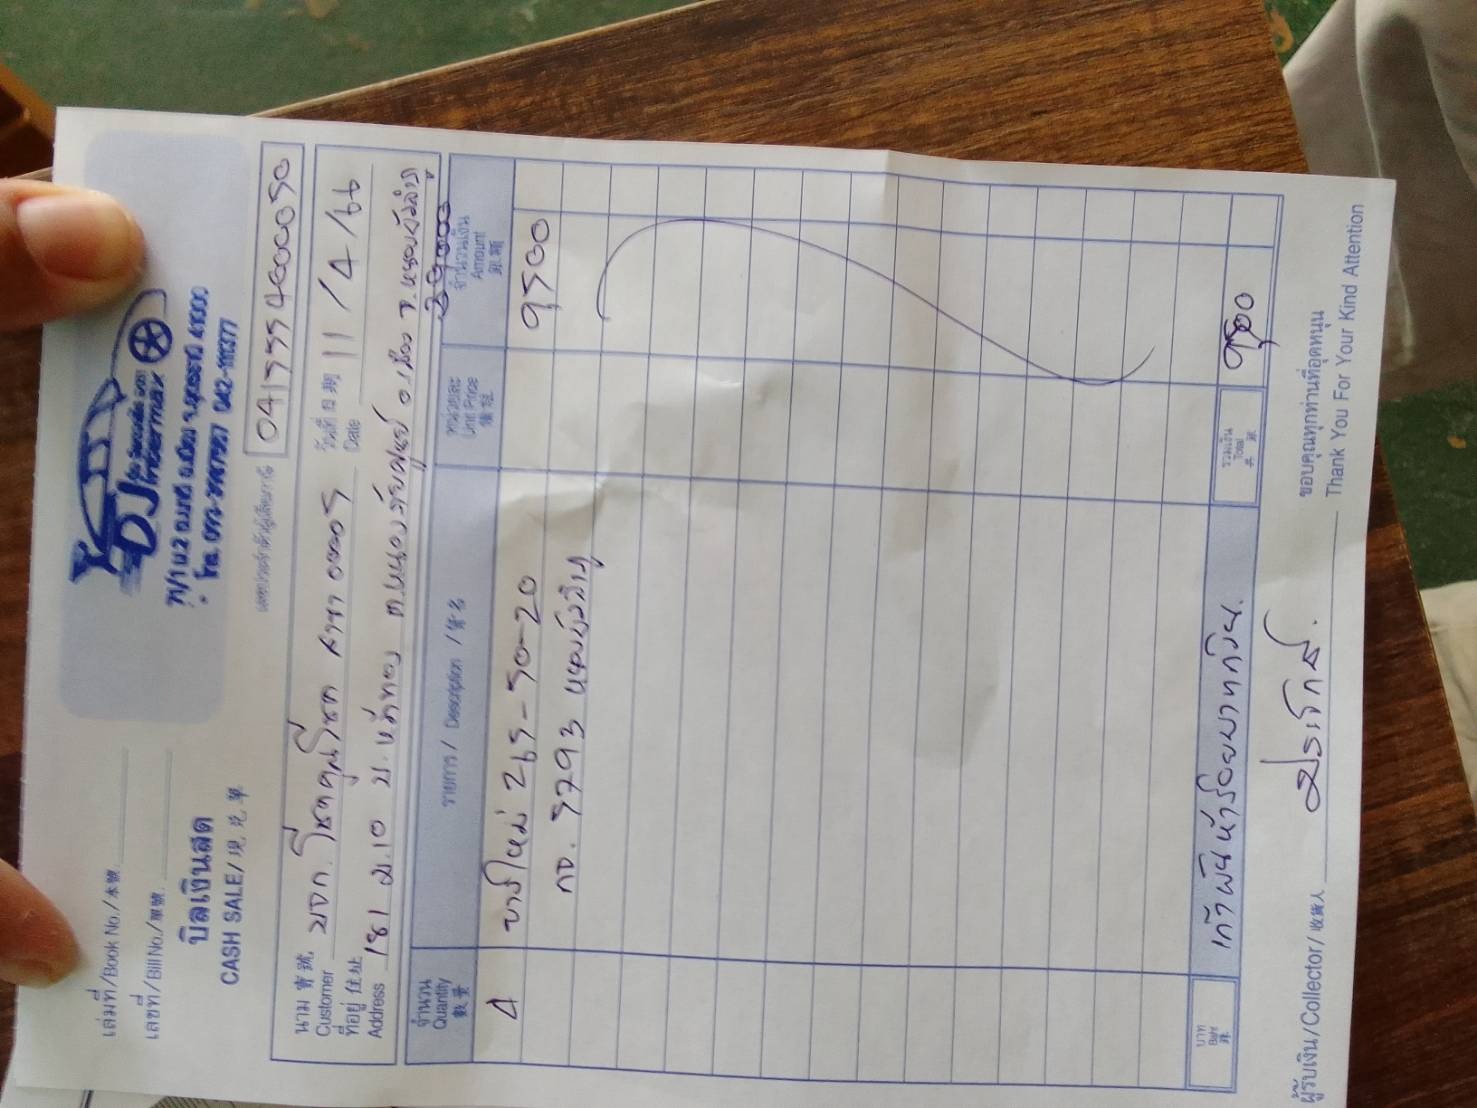 เล่มที่/Book No./本號.
เลขที่/Bill No./單號.
บิลเงินสด
CASH SALE/現兌單
DJ
Intermax
โทร. 042-111377
0417554000050
นาม 寶號
Customer
บจก. โชคคูณโชค สาขา 00005
วันที่ 日期
Date
11/4/66
ที่อยู่ 住址
Address
181 ม.10 บ. ต.หนองภัยศูนย์ อ.เมือง จ.หนองบัวลำภู
39000
จำนวน
Quantity
數量
รายการ/ Description /貨名
หน่วยละ
Unit Price
價銀
จำนวนเงิน
Amount
銀額
4 ยางใหม่ 265-50-20 9500
กอ. 5793 หนองบัวลำภู
บาท
Baht
เก้าพันห้าร้อยบาทถ้วน.
รวมเงิน
Total
共銀
9500
ผู้รับเงิน/Collector/收貨人
ขอบคุณทุกท่านที่อุดหนุน
Thank You For Your Kind Attention